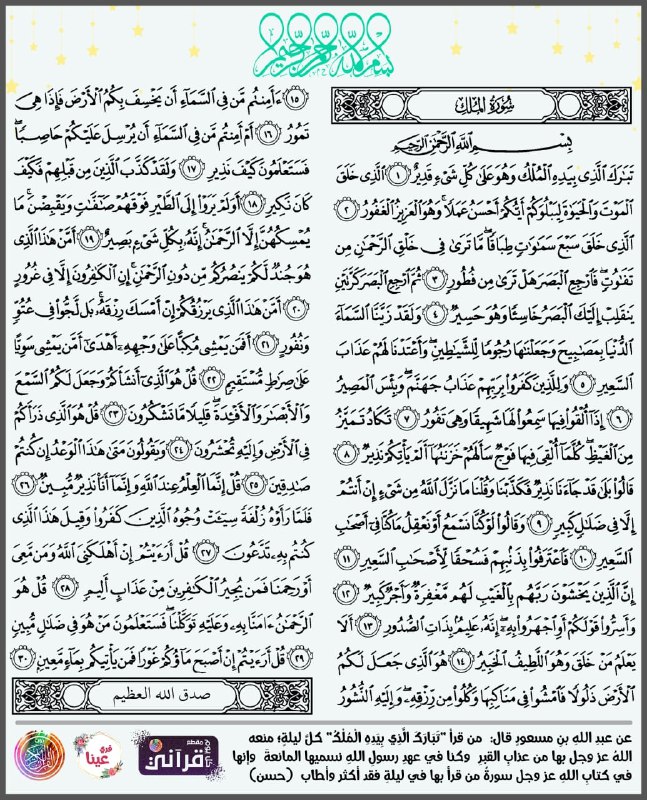 بسم الله الرحمن الرحيم
سُورَةُ المُلْكِ
بِسْمِ ٱللَّهِ ٱلرَّحْمَٰنِ ٱلرَّحِيمِ
تَبَٰرَكَ ٱلَّذِى بِيَدِهِ ٱلْمُلْكُ وَهُوَ عَلَىٰ كُلِّ شَىْءٍ قَدِيرٌ ١ ٱلَّذِى خَلَقَ
ٱلْمَوْتَ وَٱلْحَيَوٰةَ لِيَبْلُوَكُمْ أَيُّكُمْ أَحْسَنُ عَمَلًا ۚ وَهُوَ ٱلْعَزِيزُ ٱلْغَفُورُ ٢
ٱلَّذِى خَلَقَ سَبْعَ سَمَٰوَٰتٍ طِبَاقًا ۖ مَّا تَرَىٰ فِى خَلْقِ ٱلرَّحْمَٰنِ مِن
تَفَٰوُتٍ ۖ فَٱرْجِعِ ٱلْبَصَرَ هَلْ تَرَىٰ مِن فُطُورٍ ٣ ثُمَّ ٱرْجِعِ ٱلْبَصَرَ كَرَّتَيْنِ
يَنقَلِبْ إِلَيْكَ ٱلْبَصَرُ خَاسِئًا وَهُوَ حَسِيرٌ ٤ وَلَقَدْ زَيَّنَّا ٱلسَّمَآءَ
ٱلدُّنْيَا بِمَصَٰبِيحَ وَجَعَلْنَٰهَا رُجُومًا لِّلشَّيَٰطِينِ ۖ وَأَعْتَدْنَا لَهُمْ عَذَابَ
ٱلسَّعِيرِ ٥ وَلِلَّذِينَ كَفَرُوا۟ بِرَبِّهِمْ عَذَابُ جَهَنَّمَ ۖ وَبِئْسَ ٱلْمَصِيرُ
٦ إِذَآ أُلْقُوا۟ فِيهَا سَمِعُوا۟ لَهَا شَهِيقًا وَهِىَ تَفُورُ ٧ تَكَادُ تَمَيَّزُ
مِنَ ٱلْغَيْظِ ۖ كُلَّمَآ أُلْقِىَ فِيهَا فَوْجٌ سَأَلَهُمْ خَزَنَتُهَآ أَلَمْ يَأْتِكُمْ نَذِيرٌ ٨
قَالُوا۟ بَلَىٰ قَدْ جَآءَنَا نَذِيرٌ فَكَذَّبْنَا وَقُلْنَا مَا نَزَّلَ ٱللَّهُ مِن شَىْءٍ إِنْ أَنتُمْ
إِلَّا فِى ضَلَٰلٍ كَبِيرٍ ٩ وَقَالُوا۟ لَوْ كُنَّا نَسْمَعُ أَوْ نَعْقِلُ مَا كُنَّا فِىٓ أَصْحَٰبِ
ٱلسَّعِيرِ ١٠ فَٱعْتَرَفُوا۟ بِذَنۢبِهِمْ فَسُحْقًا لِّأَصْحَٰبِ ٱلسَّعِيرِ ١١
إِنَّ ٱلَّذِينَ يَخْشَوْنَ رَبَّهُم بِٱلْغَيْبِ لَهُم مَّغْفِرَةٌ وَأَجْرٌ كَبِيرٌ ١٢
وَأَسِرُّوا۟ قَوْلَكُمْ أَوِ ٱجْهَرُوا۟ بِهِۦٓ ۖ إِنَّهُۥ عَلِيمٌۢ بِذَاتِ ٱلصُّدُورِ ١٣ أَلَا
يَعْلَمُ مَنْ خَلَقَ وَهُوَ ٱللَّطِيفُ ٱلْخَبِيرُ ١٤ هُوَ ٱلَّذِى جَعَلَ لَكُمُ
ٱلْأَرْضَ ذَلُولًا فَٱمْشُوا۟ فِى مَنَاكِبِهَا وَكُلُوا۟ مِن رِّزْقِهِۦ ۖ وَإِلَيْهِ ٱلنُّشُورُ
١٥ ءَأَمِنتُم مَّن فِى ٱلسَّمَآءِ أَن يَخْسِفَ بِكُمُ ٱلْأَرْضَ فَإِذَا هِىَ
تَمُورُ ١٦ أَمْ أَمِنتُم مَّن فِى ٱلسَّمَآءِ أَن يُرْسِلَ عَلَيْكُمْ حَاصِبًا ۖ
فَسَتَعْلَمُونَ كَيْفَ نَذِيرِ ١٧ وَلَقَدْ كَذَّبَ ٱلَّذِينَ مِن قَبْلِهِمْ فَكَيْفَ
كَانَ نَكِيرِ ١٨ أَوَلَمْ يَرَوْا۟ إِلَى ٱلطَّيْرِ فَوْقَهُمْ صَٰٓفَّٰتٍ وَيَقْبِضْنَ ۚ مَا
يُمْسِكُهُنَّ إِلَّا ٱلرَّحْمَٰنُ ۚ إِنَّهُۥ بِكُلِّ شَىْءٍۭ بَصِيرٌ ١٩ أَمَّنْ هَٰذَا ٱلَّذِى
هُوَ جُندٌ لَّكُمْ يَنصُرُكُم مِّن دُونِ ٱلرَّحْمَٰنِ ۚ إِنِ ٱلْكَٰفِرُونَ إِلَّا فِى غُرُورٍ
٢٠ أَمَّنْ هَٰذَا ٱلَّذِى يَرْزُقُكُمْ إِنْ أَمْسَكَ رِزْقَهُۥ ۚ بَل لَّجُّوا۟ فِى عُتُوٍّ
وَنُفُورٍ ٢١ أَفَمَن يَمْشِى مُكِبًّا عَلَىٰ وَجْهِهِۦٓ أَهْدَىٰٓ أَمَّن يَمْشِى سَوِيًّا
عَلَىٰ صِرَٰطٍ مُّسْتَقِيمٍ ٢٢ قُلْ هُوَ ٱلَّذِىٓ أَنشَأَكُمْ وَجَعَلَ لَكُمُ ٱلسَّمْعَ
وَٱلْأَبْصَٰرَ وَٱلْأَفْـِٔدَةَ ۖ قَلِيلًا مَّا تَشْكُرُونَ ٢٣ قُلْ هُوَ ٱلَّذِى ذَرَأَكُمْ
فِى ٱلْأَرْضِ وَإِلَيْهِ تُحْشَرُونَ ٢٤ وَيَقُولُونَ مَتَىٰ هَٰذَا ٱلْوَعْدُ إِن كُنتُمْ
صَٰدِقِينَ ٢٥ قُلْ إِنَّمَا ٱلْعِلْمُ عِندَ ٱللَّهِ وَإِنَّمَآ أَنَا۠ نَذِيرٌ مُّبِينٌ ٢٦
فَلَمَّا رَأَوْهُ زُلْفَةً سِيٓـَٔتْ وُجُوهُ ٱلَّذِينَ كَفَرُوا۟ وَقِيلَ هَٰذَا ٱلَّذِى
كُنتُم بِهِۦ تَدَّعُونَ ٢٧ قُلْ أَرَءَيْتُمْ إِنْ أَهْلَكَنِىَ ٱللَّهُ وَمَن مَّعِىَ
أَوْ رَحِمَنَا فَمَن يُجِيرُ ٱلْكَٰفِرِينَ مِنْ عَذَابٍ أَلِيمٍ ٢٨ قُلْ هُوَ
ٱلرَّحْمَٰنُ ءَامَنَّا بِهِۦ وَعَلَيْهِ تَوَكَّلْنَا ۖ فَسَتَعْلَمُونَ مَنْ هُوَ فِى ضَلَٰلٍ مُّبِينٍ
٢٩ قُلْ أَرَءَيْتُمْ إِنْ أَصْبَحَ مَآؤُكُمْ غَوْرًا فَمَن يَأْتِيكُم بِمَآءٍ مَّعِينٍۭ ٣٠
صدق الله العظيم
عن عبدِ اللهِ بنِ مسعودٍ قال: من قرأ "تَبَارَكَ الَّذِي بِيَدِهِ الْمُلْكُ" كلَّ ليلةٍ؛ منعه
اللهُ عز وجل بها من عذابِ القبرِ وكنا في عهدِ رسولِ اللهِ نسميها المانعةَ وإنها
في كتابِ اللهِ عز وجل سورةٌ من قرأ بها في ليلةٍ فقد أكثر وأطاب (حسن)
مقطع
قرآني
قري
عينا